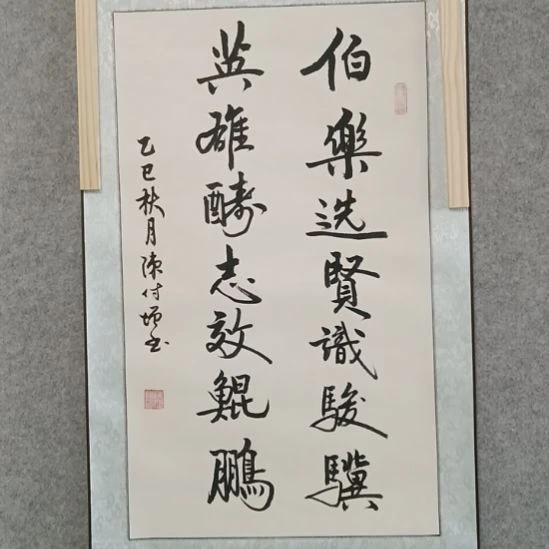 伯樂选賢識駿驥
英雄酬志效鯤鵬
乙巳秋月陳付